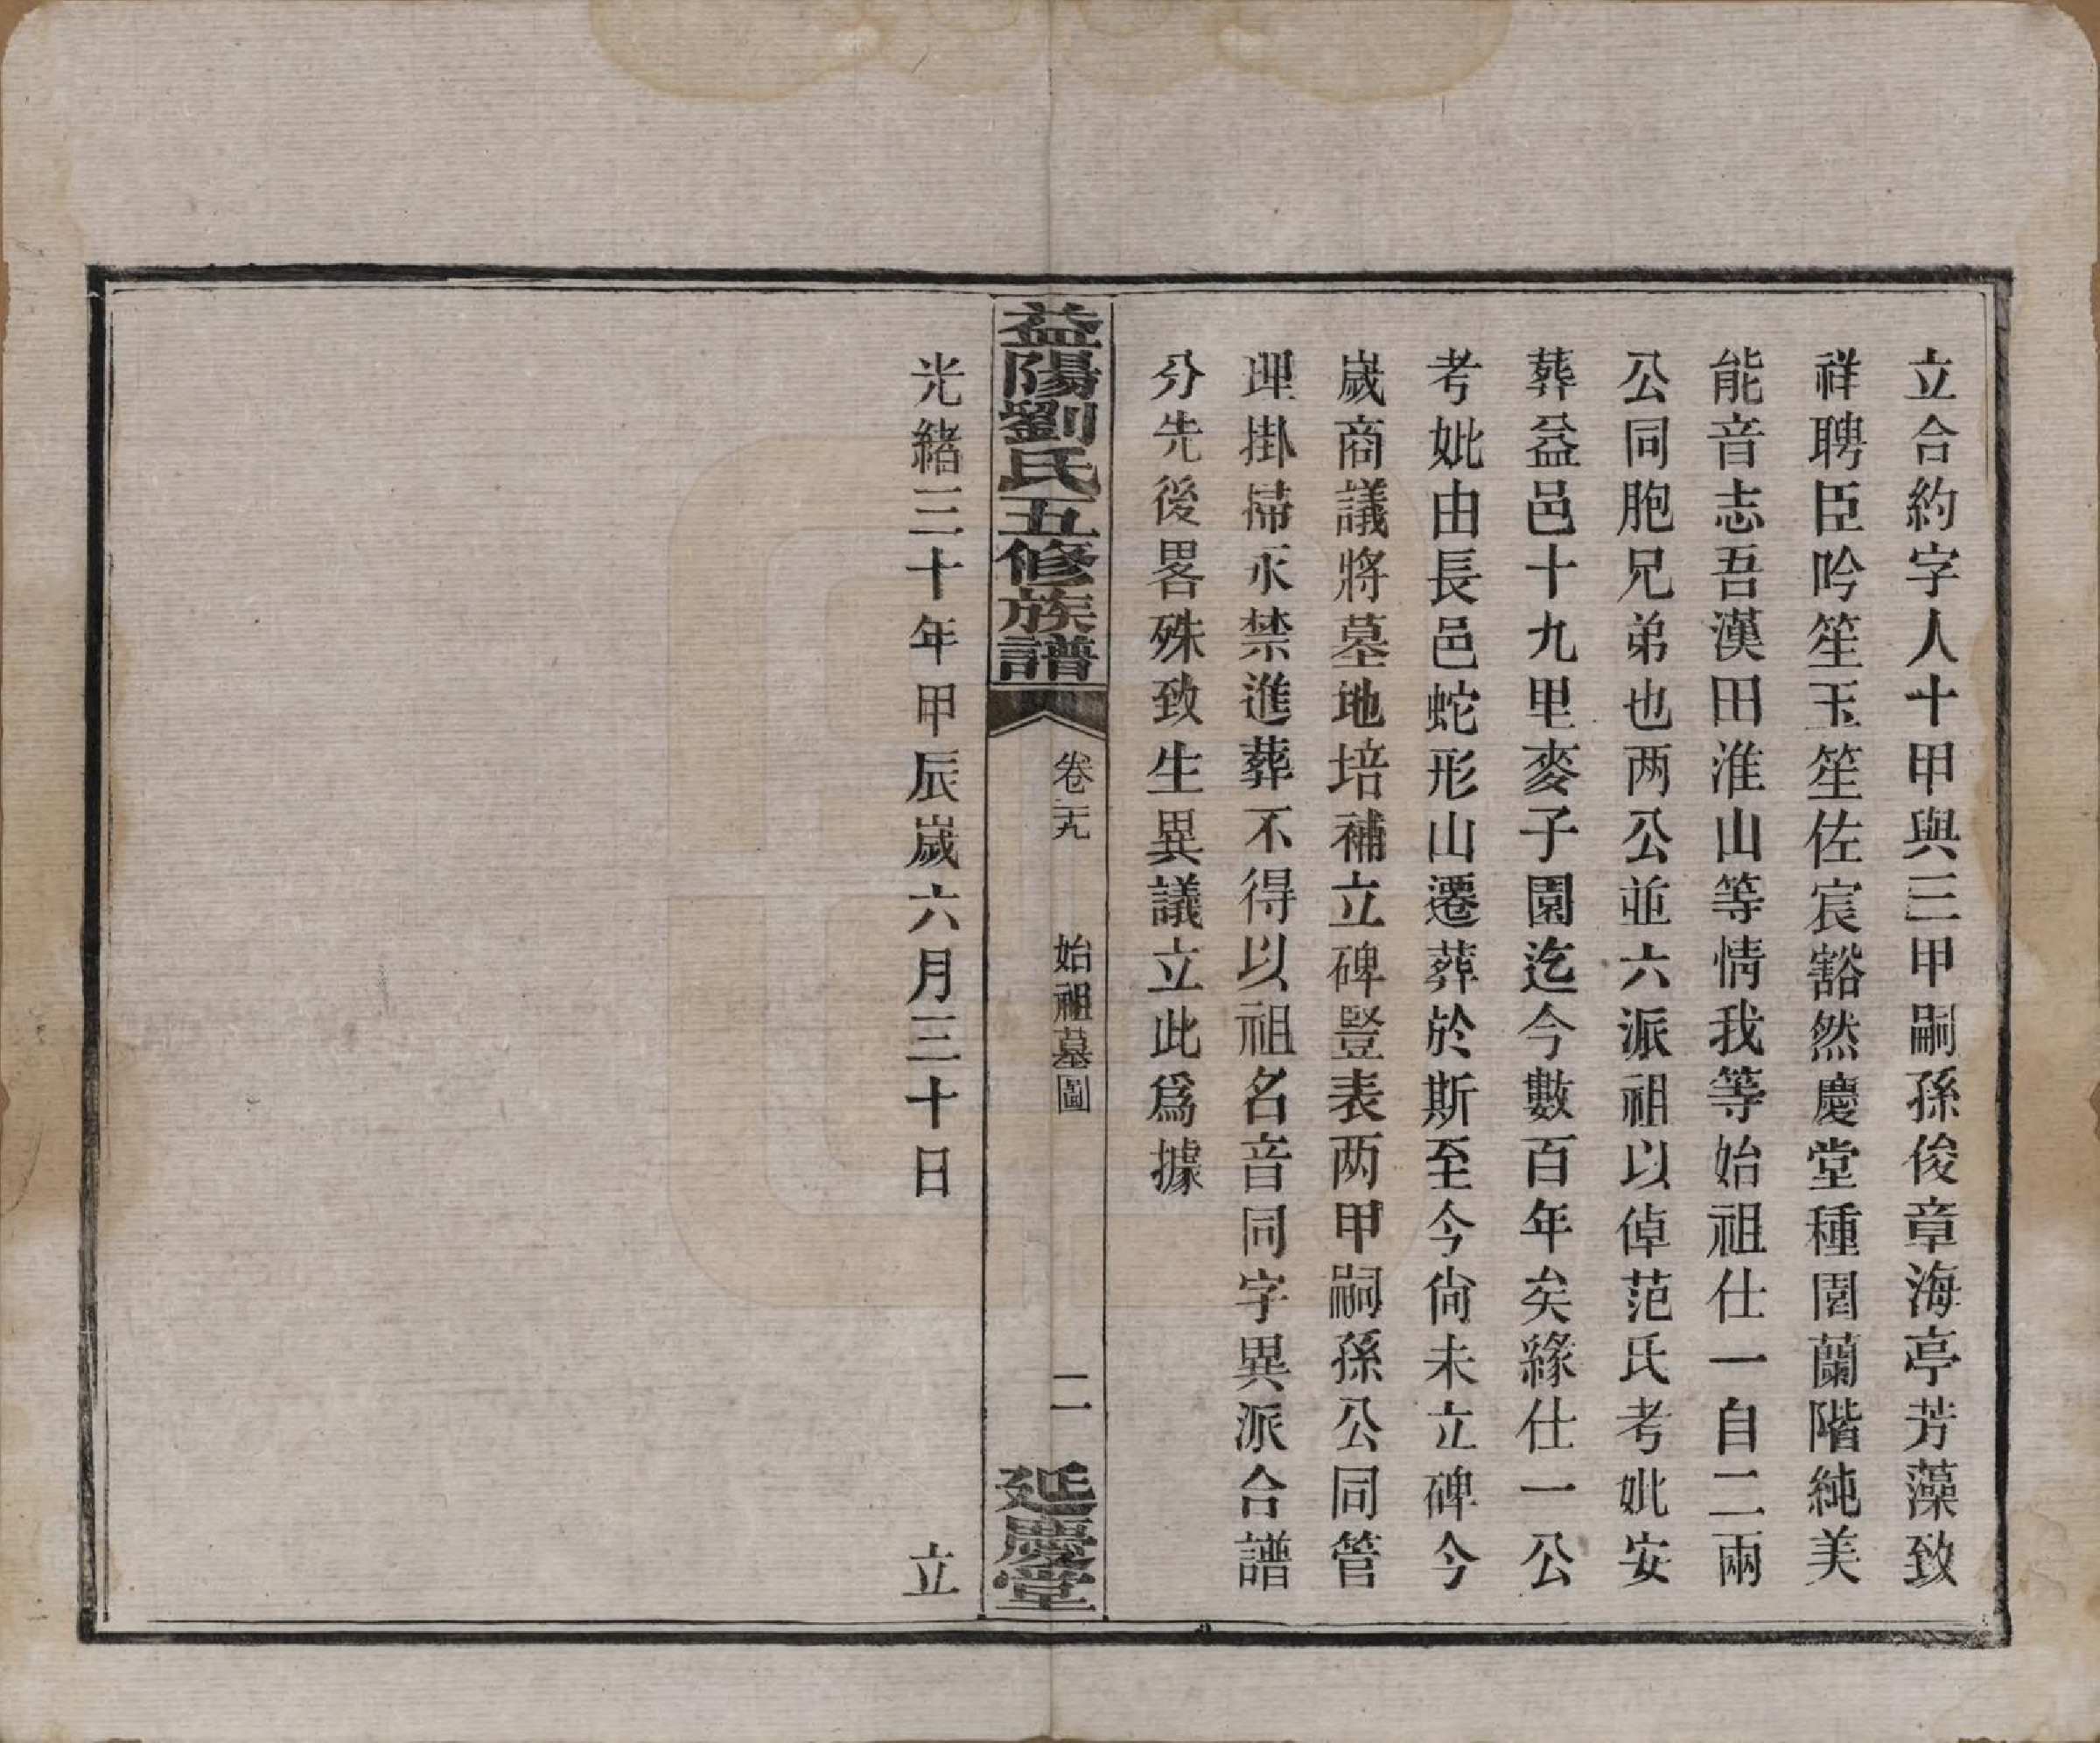 立合約字人十甲與三甲嗣孫俊章海亭芳藻致
祥聘臣吟笙玉笙佐宸豁然慶堂種園蘭階純美
能音志吾漢田淮山等情我等始祖仕一自二兩
公同胞兄弟也两公並六派祖以倬范氏考妣安
葬益邑十九里麥子園迄今數百年矣緣仕一公
考妣由長邑蛇形山遷葬於斯至今尙未立碑今
歲商議將墓地培補立碑豎表两甲嗣孫公同管
理掛掃永禁進葬不得以祖名音同字異派合譜
分先後畧殊致生異議立此爲據
益陽劉氏五修族譜
卷二十九
始祖墓圖
二
延慶堂
光緒三十年甲辰歲六月三十日
立